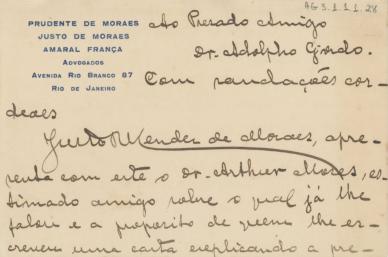 AG 3.1.1.1.28
PRUDENTE DE MORAES
JUSTO DE MORAES
AMARAL FRANÇA
ADVOGADOS
AVENIDA RIO BRANCO 87
RIO DE JANEIRO
Ao Prezado Amigo
Dr. Adolpho Gordo.
Com saudações cor-
deaes
Justo Mendes de Moraes, apre-
senta com este o Dr. Arthur Moses, es-
timado amigo sobre o qual já lhe
falou e a proposito de quem lhe es-
creveu uma carta explicando a pre-